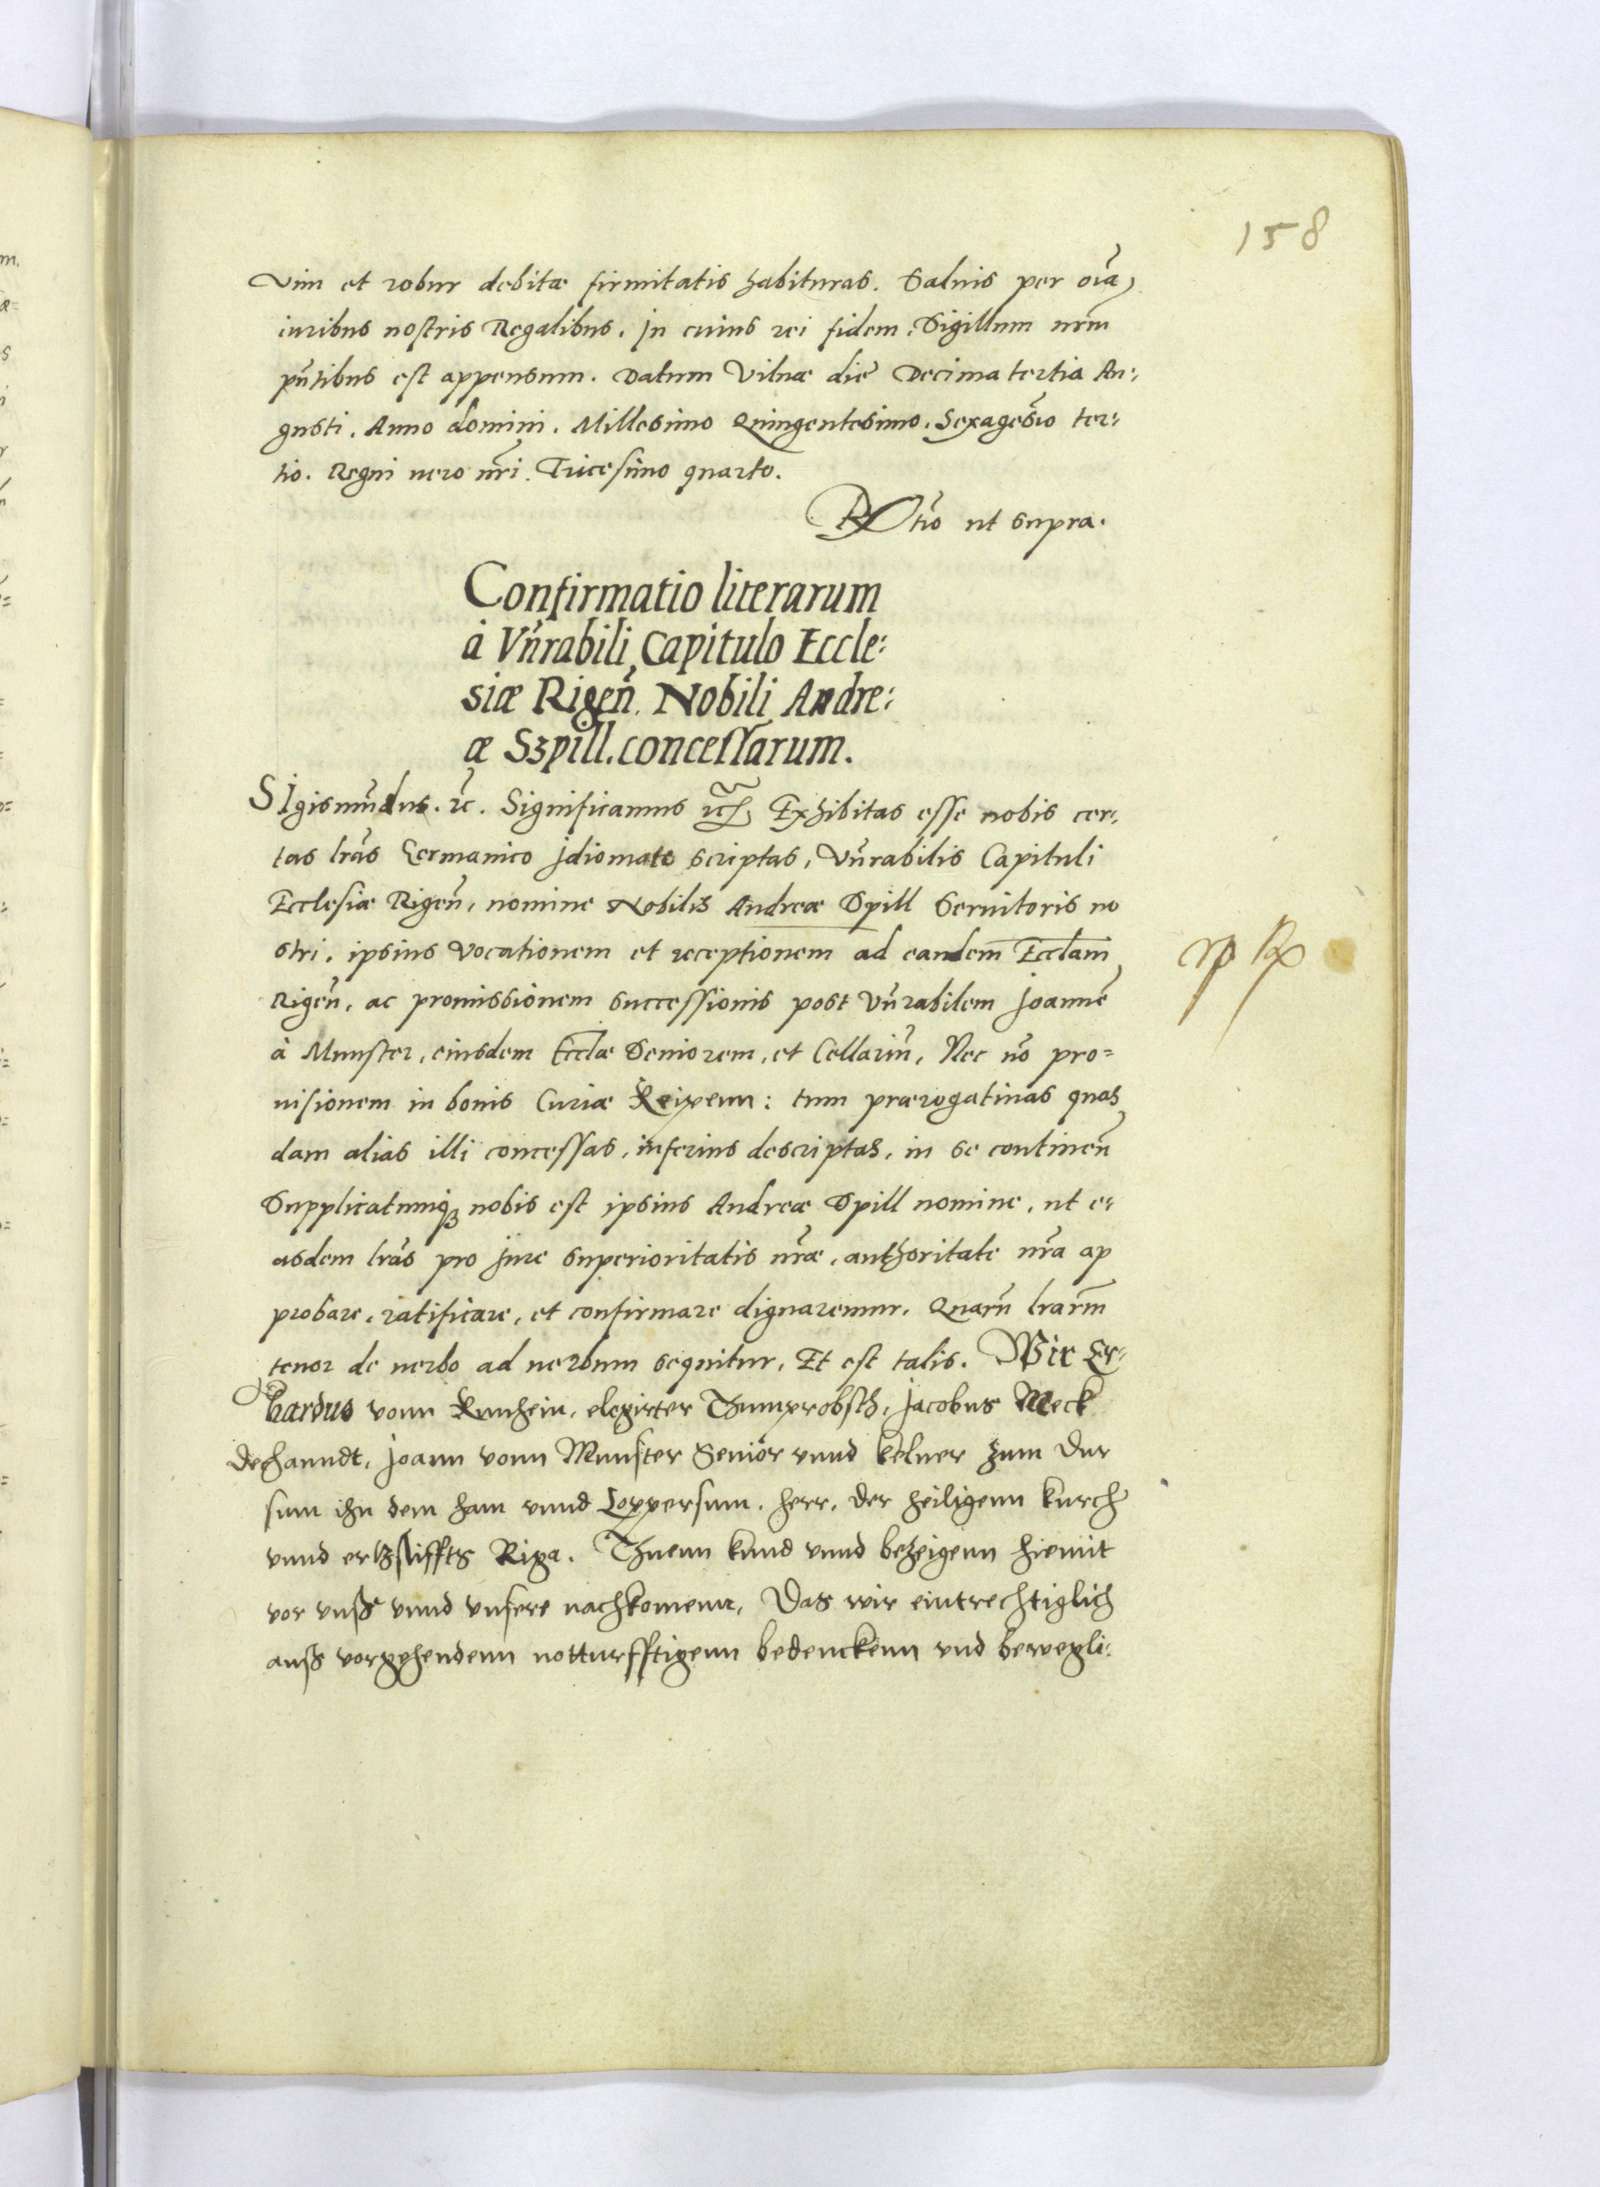 158
Vim et robur debitæ firmitatis habituras. Saluis per oı̃a
iuribus nostris Regalibus. In cuius rei fidem. Sigillum nrm̃
pñtibus est appensum. Datum Vilnæ die Decima tertia Au-
gusti. Anno domini. Millesimo Quingentesimo. Sexagesĩo ter-
tio. Regni uero nrĩ. Tricesimo quarto.
ut supra.
Confirmatio literarum
à Vñrabili Capitulo Eccle-
siæ Rigeñ. Nobili Andre-
æ Szpill. concessarum.
Sigismũdus. &c. Significamus &c. Exhibitas esse nobis cer-
tas lrãs Germanico Idiomate scriptas, Vñrabilis Capituli
Ecclesiæ Rigeñ, nomine Nobilis Andreæ Spill Seruitoris no
stri. ipsius vocationem et receptionem ad eandem Eccl̃am
Rigeñ, ac promissionem successionis post Vñrabilem Joannẽ
à Munster, eiusdem Eccl̃æ Seniorem, et Cellariũ, Nec nõ pro-
uisionem in bonis Curiæ Keipenn: tum prærogatiuas quas
dam alias illi concessas, inferius descriptas, in se contineñ
Supplicatumq3 nobis est ipsius Andreæ Spill nomine, ut e-
asdem lrãs pro Jure superioritatis nrãe, authoritate nrã ap
probare, ratificare, et confirmare dignaremur. Quarũ lrarm̃
tenor de uerbo ad uerbum sequitur, Et est talis. Wir Er-
hardus vonn Kunhein, elegirter Thumprobsth, Jacobus Meck
dechanndt, Joann vonn Munster Senior vnnd kelner zum Dur
sum ihn dem ham vnnd Loppersum. herr. der heiligenn kurch
vnnd ertzstiffts Riga. Thuenn kund vnnd bezeigenn hiemit
vor vnß vnnd vnsere nachkomenn, Das wir eintrechtiglich
auß vorgehendenn notturfftigenn bedenckenn vnd bewegli-